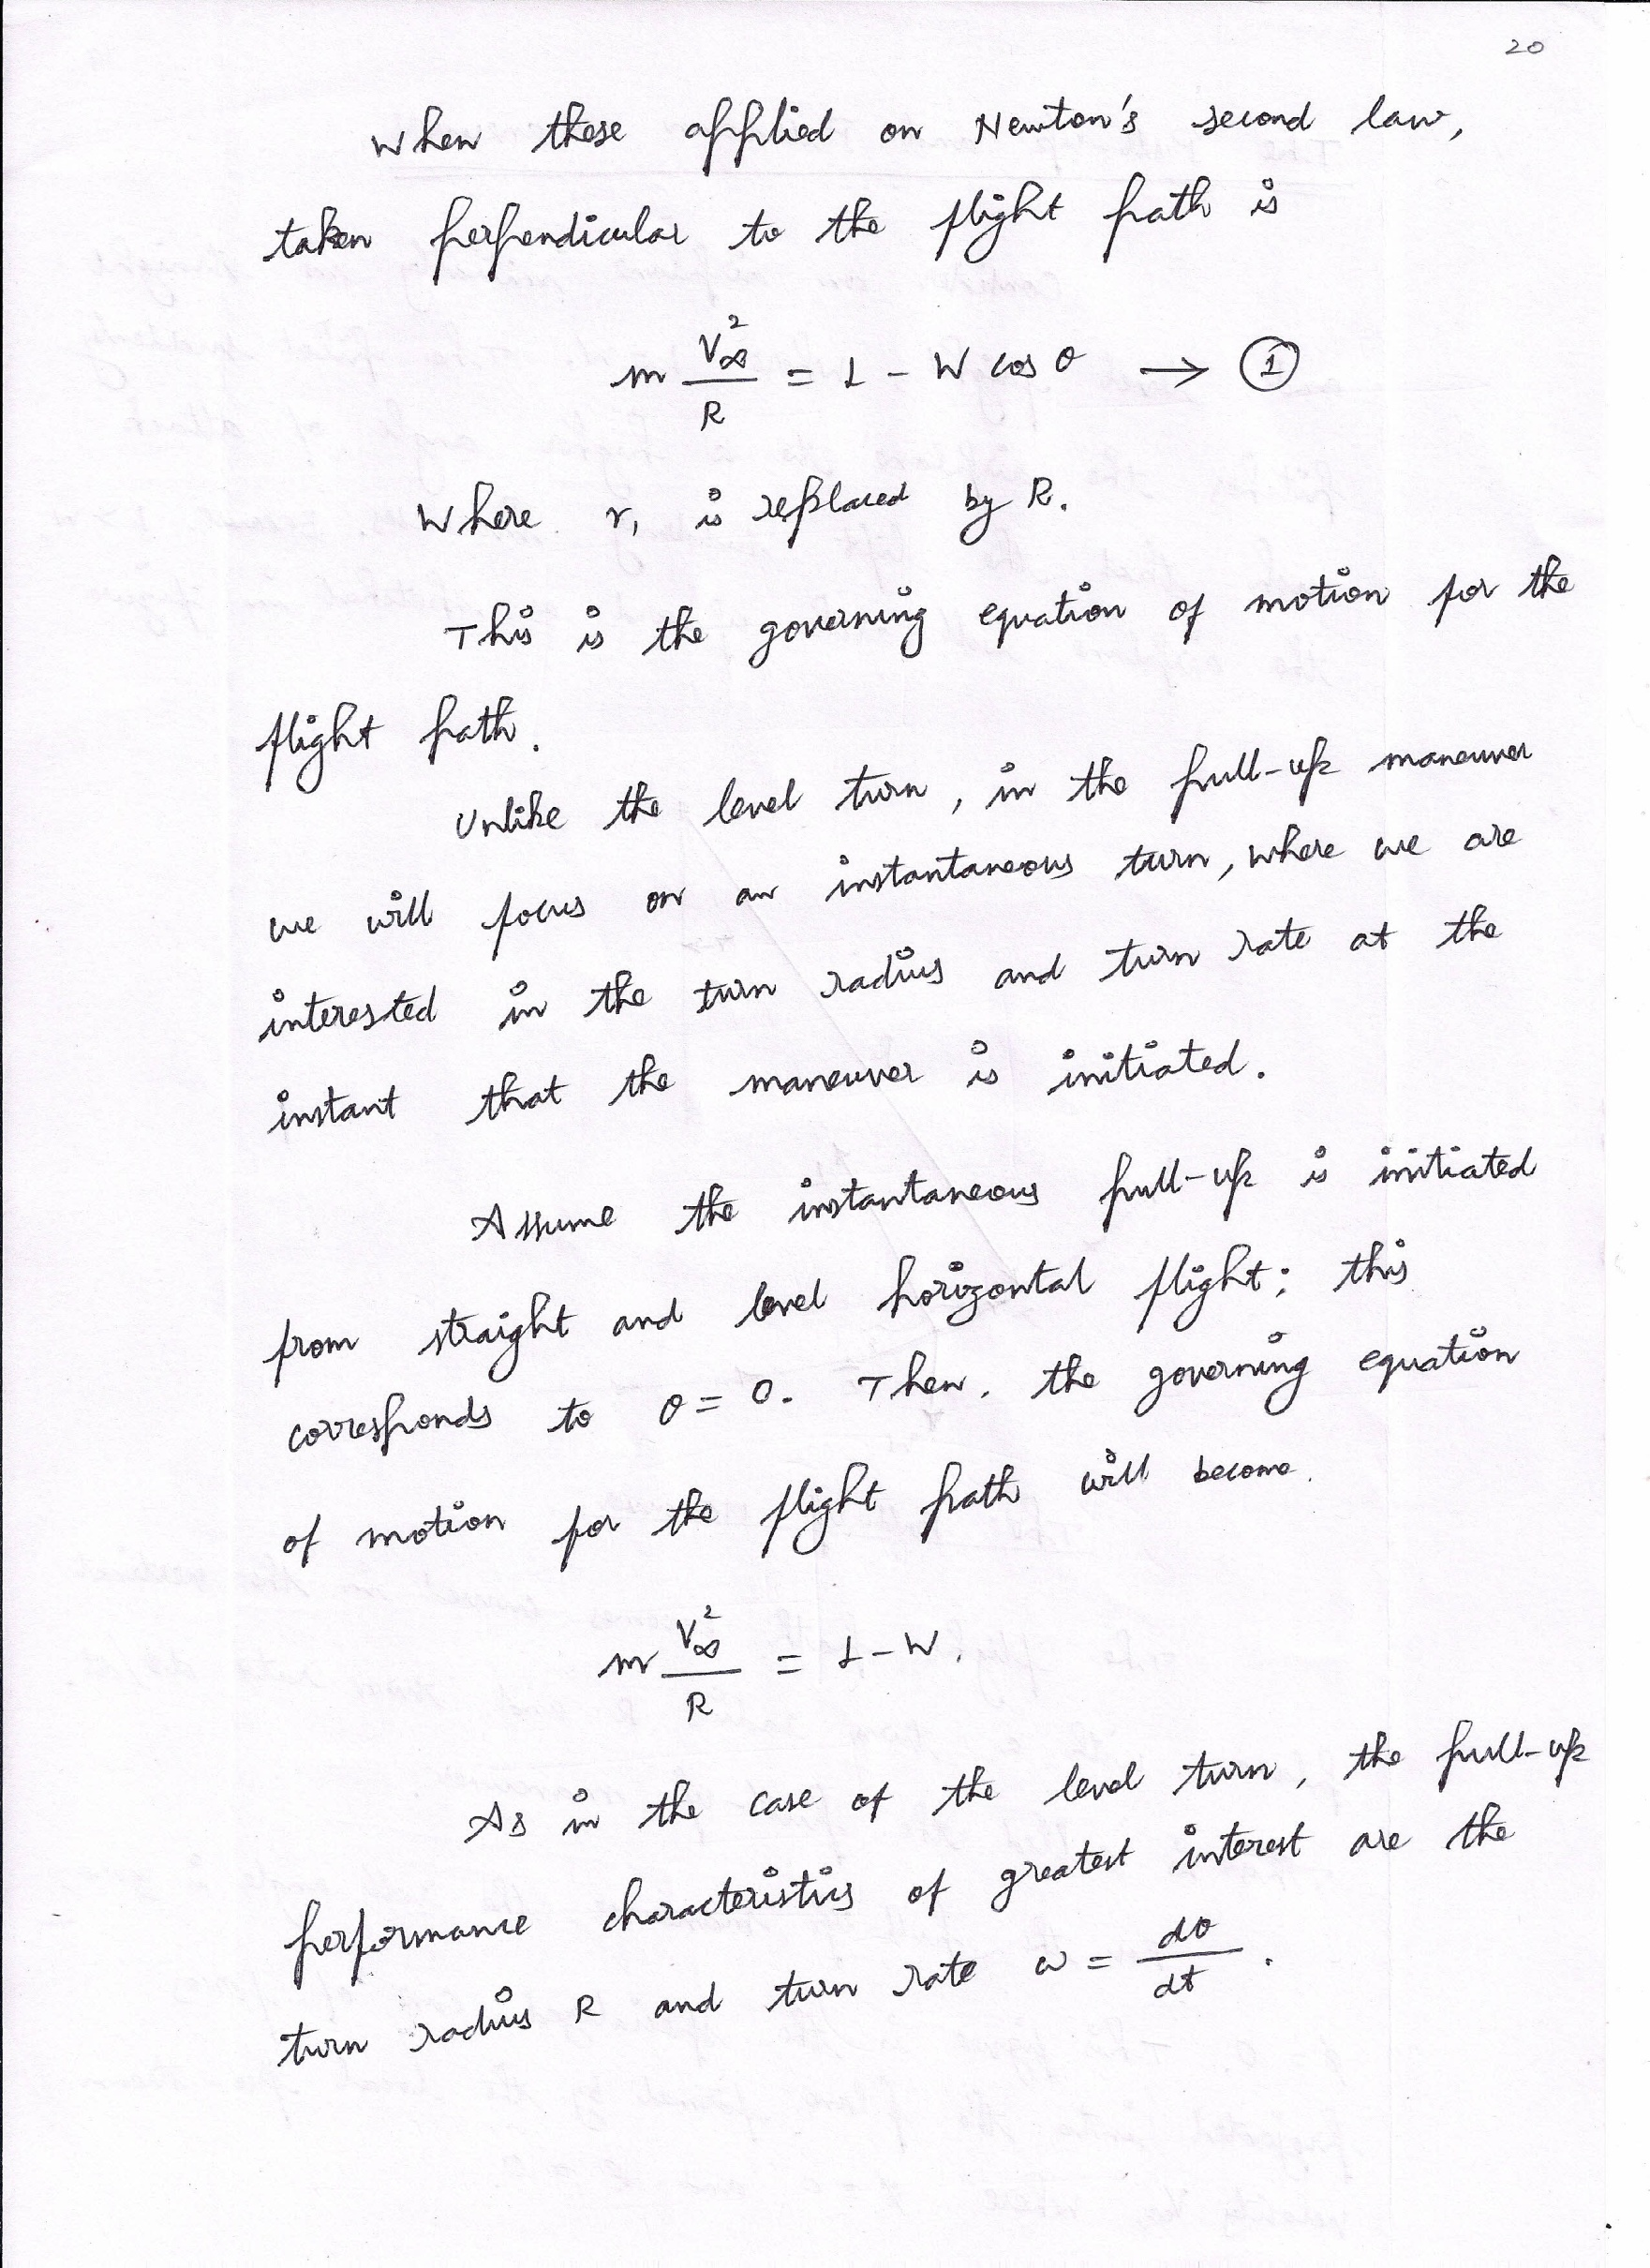 20
When these applied on Newton's second law,
taken perpendicular to the flight path is
m V∞² / R = L - W cos θ → ①
Where r₁ is replaced by R.
This is the governing equation of motion for the
flight path.
Unlike the level turn, in the pull-up maneuver
we will focus on an instantaneous turn, where we are
interested in the turn radius and turn rate at the
instant that the maneuver is initiated.
Assume the instantaneous pull-up is initiated
from straight and level horizontal flight; this
corresponds to θ = 0. Then, the governing equation
of motion for the flight path will become.
m V∞² / R = L - W.
As in the case of the level turn, the pull-up
performance characteristics of greatest interest are the
turn radius R and turn rate ω = dθ / dt .